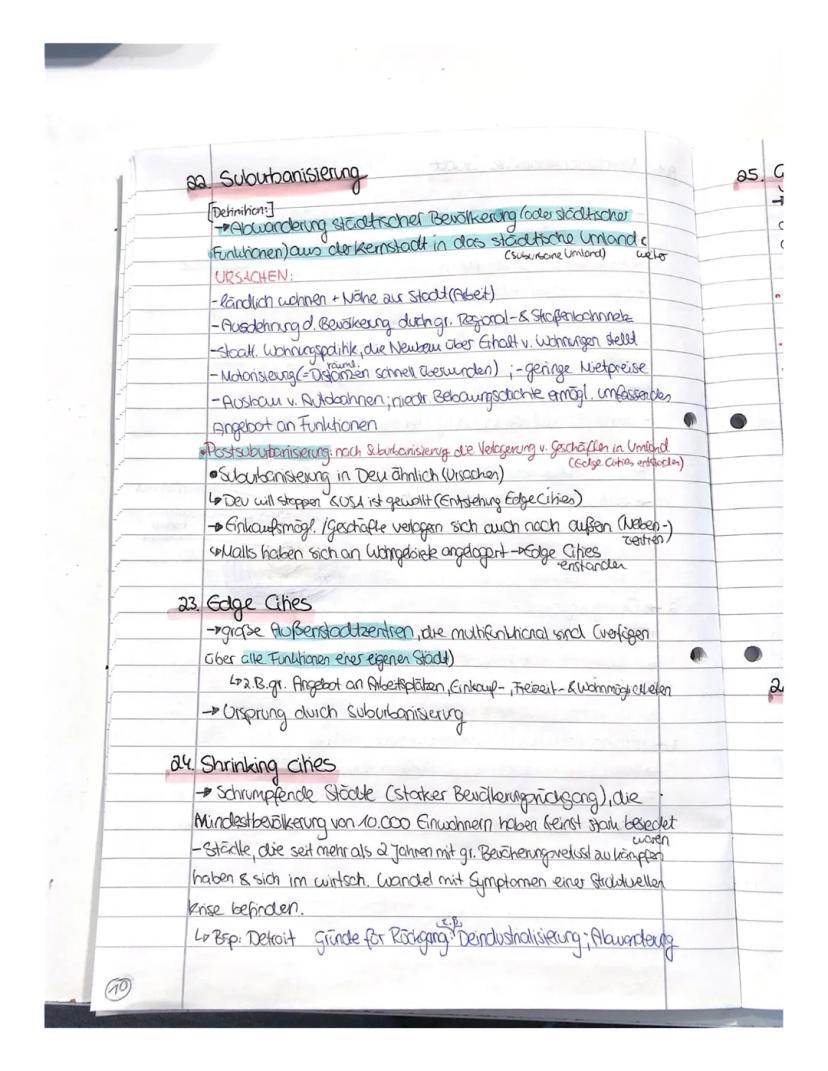 22. Suburbanisierung
[Definition:]
→ Abwanderung städtischer Bevölkerung (oder städtischer
Funktionen) aus der Kernstadt in das städtische Umland &
(suburbane Umland) weiter
URSACHEN:
- ländlich wohnen + Nähe zur Stadt (Arbeit)
- Ausdehnung d. Bevölkerung durch gr. Regional- & Straßenbahnnetz
- staatl. Wohnungspolitik, die Neubau über Erhalt v. Wohnungen stellt
- Motorisierung (= räuml. Distanzen schnell überwunden) ; - geringe Mietpreise
- Ausbau v. Autobahnen; niedr. Bebauungsdichte ermögl. umfassendes
Angebot an Funktionen
• Postsuburbanisierung: nach Suburbanisierung die Verlagerung v. Geschäften in Umland
(Edge Cities entstanden)
• Suburbanisierung in Deu ähnlich (Ursachen)
↳ Deu will stoppen & USA ist gewollt (Entstehung Edge Cities)
→ Einkaufsmögl. / Geschäfte verlagern sich auch nach außen (Neben-)
zentren)
↳ Malls haben sich an Wohngebiete angelagert → Edge Cities
entstanden
23. Edge Cities
→ große Außenstadtzentren, die multifunktional sind (verfügen
über alle Funktionen einer eigenen Stadt)
↳ z.B. gr. Angebot an Arbeitsplätzen, Einkauf-, Freizeit- & Wohnmöglichkeiten
→ Ursprung durch Suburbanisierung
24. Shrinking cities
→ Schrumpfende Städte (starker Bevölkerungsrückgang), die
Mindestbevölkerung von 10.000 Einwohnern haben & einst stark besiedelt
waren
- Städte, die seit mehr als 2 Jahren mit gr. Bevölkerungsverlust zu kämpfen
haben & sich im wirtsch. Wandel mit Symptomen einer strukturellen
Krise befinden.
↳ Bsp: Detroit Gründe für Rückgang: z.B. Deindustrialisierung; Abwanderung
10
25.